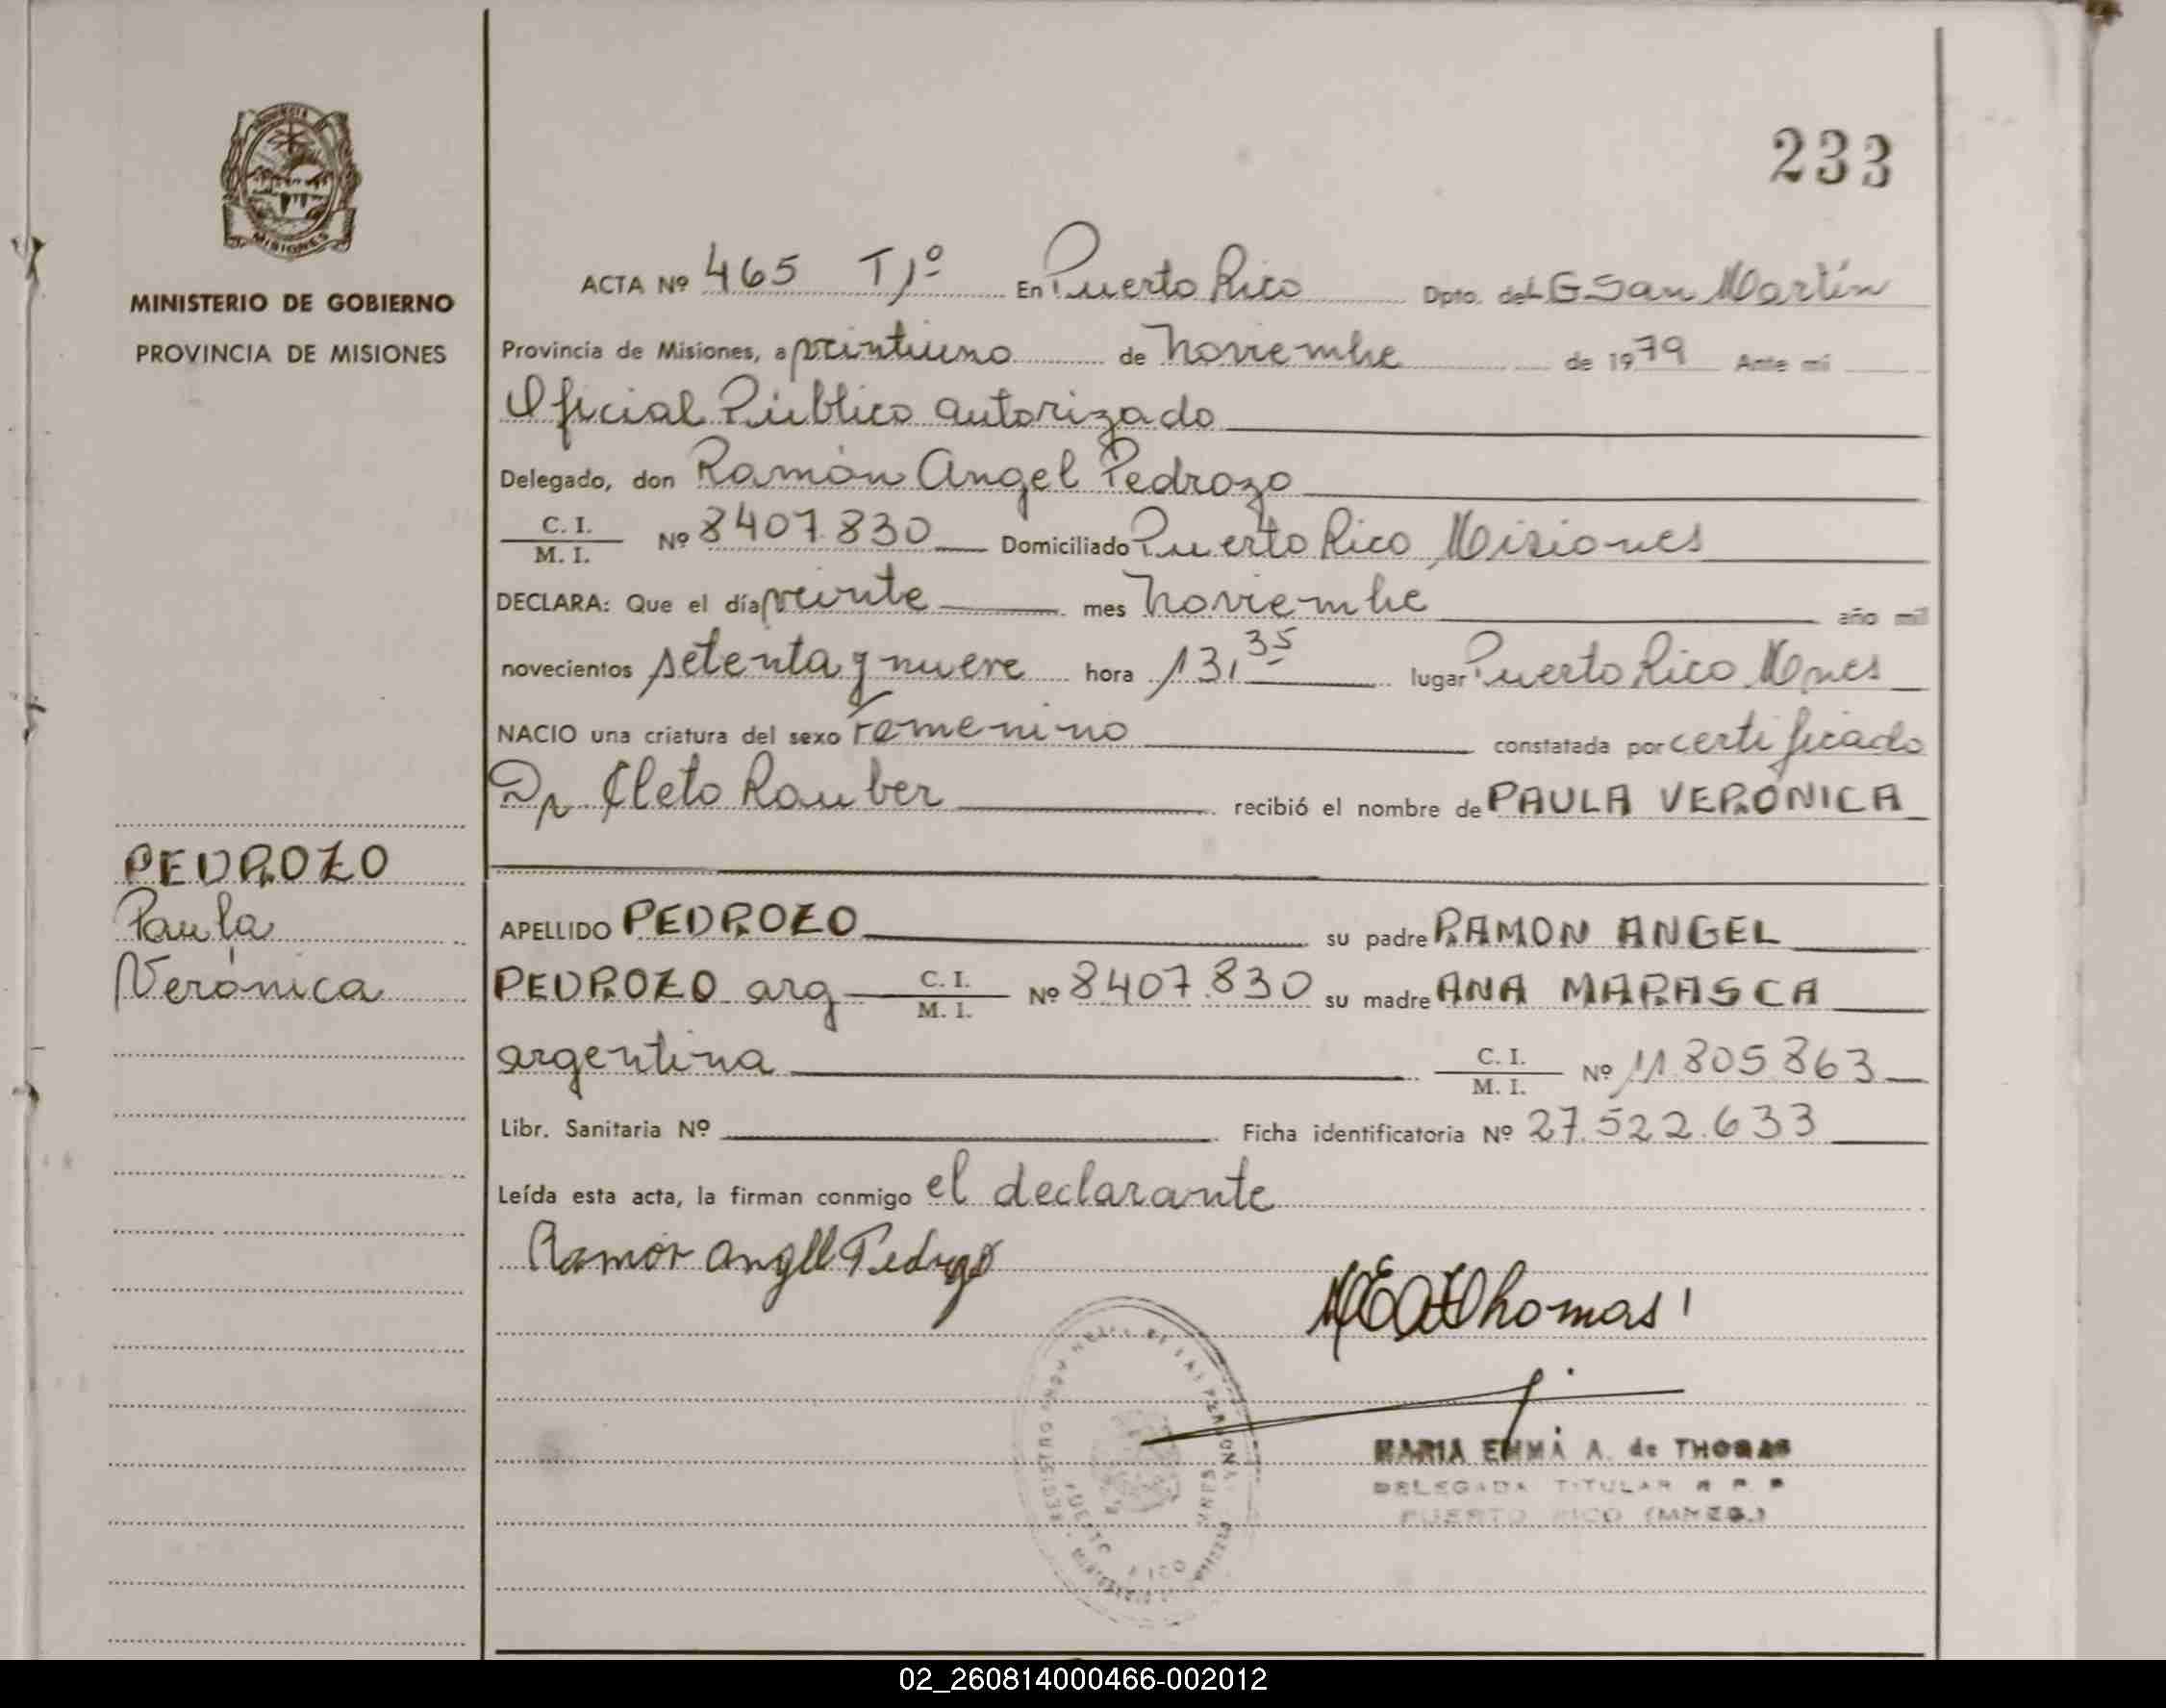 233
MINISTERIO DE GOBIERNO
PROVINCIA DE MISIONES
MISIONES
ACTA Nº 465 T1º En Puerto Rico Dpto. del G San Martín
Provincia de Misiones, a veintiuno de noviembre de 1979 Ante mí
Oficial Público autorizado
Delegado, don Ramón Angel Pedrozo
C. I.
M. I. Nº 8407.830 Domiciliado Puerto Rico Misiones
DECLARA: Que el día veinte mes noviembre año mil
novecientos setenta y nueve hora 13,35 lugar Puerto Rico Mnes
NACIO una criatura del sexo Femenino constatada por certificado
Dr Cleto Rauber recibió el nombre de PAULA VERÓNICA
PEDROZO
Paula
Verónica
APELLIDO PEDROZO su padre RAMON ANGEL
PEDROZO arg C. I.
M. I. Nº 8407.830 su madre ANA MARASCA
argentina C. I.
M. I. Nº 11.805.863
Libr. Sanitaria Nº Ficha identificatoria Nº 27.522.633
Leída esta acta, la firman conmigo el declarante
Ramón Angel Pedrozo
Thomas
MARIA EMMA A. de THOMAS
DELEGADA TITULAR R P P
PUERTO RICO (MNES.)
02_260814000466-002012